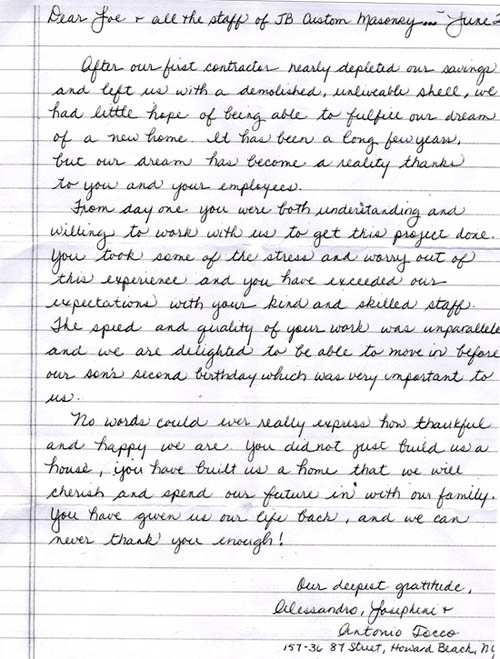 Dear Joe + all the staff of JB Custom Masonry... June
After our first contractor nearly depleted our savings
and left us with a demolished, unliveable shell, we
had little hope of being able to fulfill our dream
of a new home. It has been a long few years,
but our dream has become a reality thanks
to you and your employees.
From day one you were both understanding and
willing to work with us to get this project done.
You took some of the stress and worry out of
this experience and you have exceeded our
expectations with your kind and skilled staff.
The speed and quality of your work was unparallele
and we are delighted to be able to move in before
our son's second birthday which was very important to
us.
No words could ever really express how thankful
and happy we are. You did not just build us a
house, you have built us a home that we will
cherish and spend our future in with our family.
You have given us our life back, and we can
never thank you enough!
Our deepest gratitude,
Alessandro, Josephine +
Antonio Tocco
157-36 87 Street, Howard Beach, NY